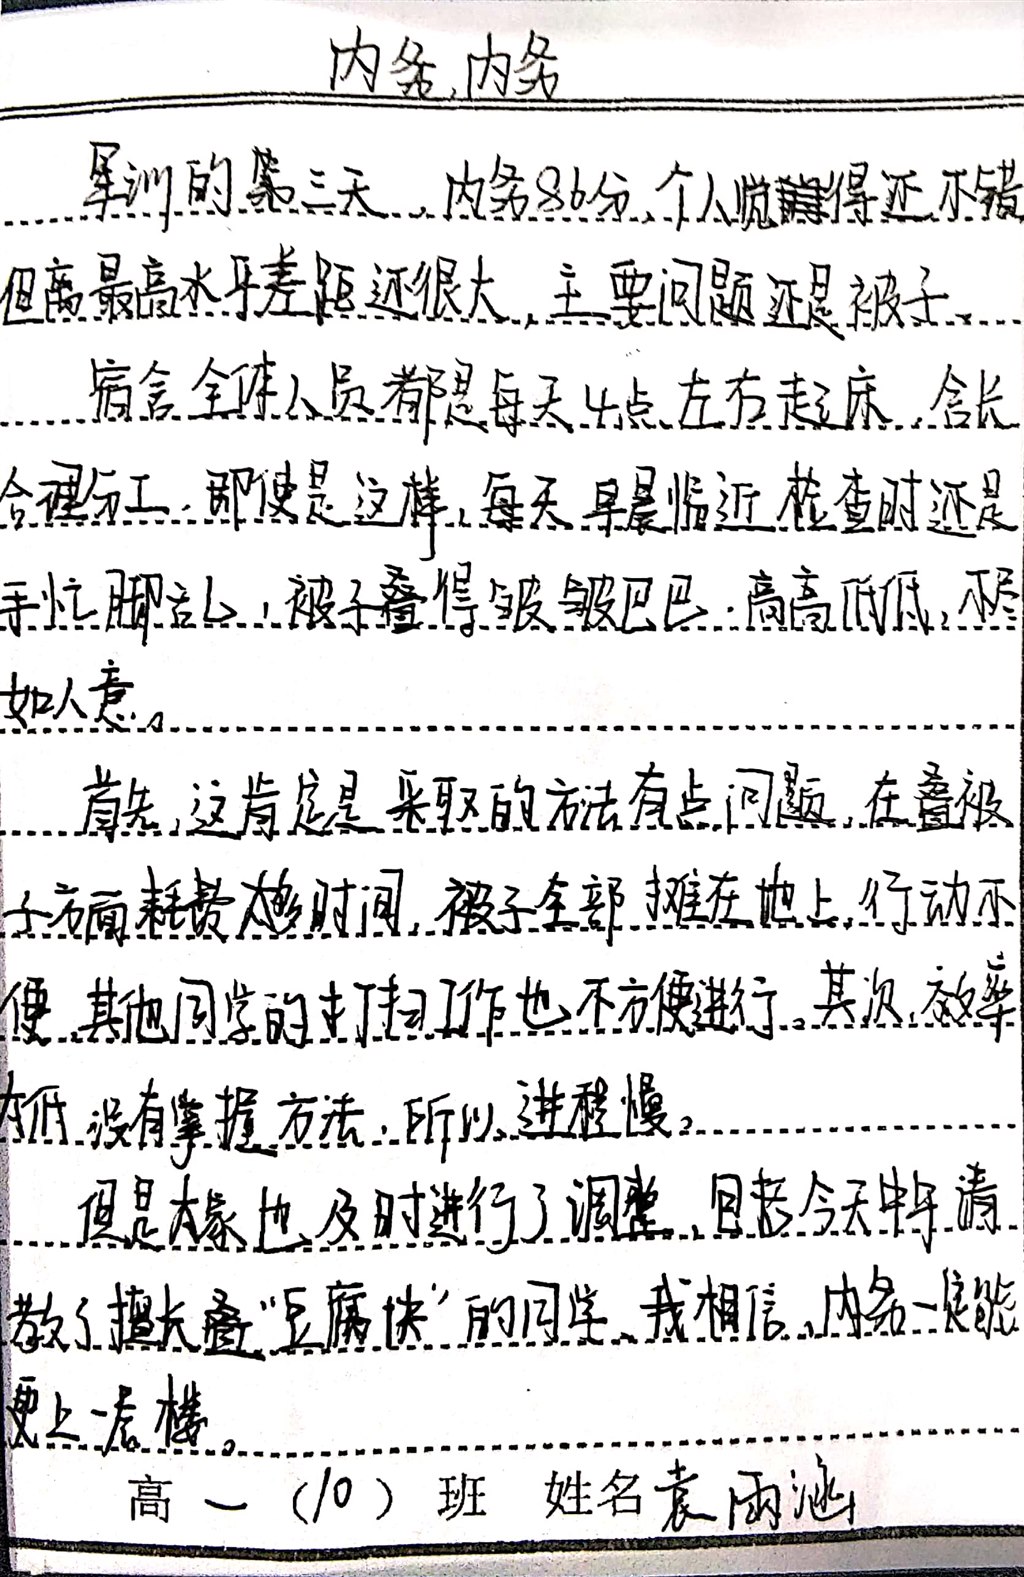 内务,内务
军训的第三天,内务86分,个人觉得还不错
但离最高水平差距还很大,主要问题还是被子。
宿舍全体人员都是每天4点左右起床,舍长
合理分工,即使是这样,每天早晨临近检查时还是
手忙脚乱,被子叠得皱皱巴巴,高高低低,不尽
如人意。
首先,这肯定是采取的方法有点问题,在叠被
子方面耗费太多时间,被子全部摊在地上,行动不
便,其他同学的打扫工作也不方便进行。其次,效率
太低,没有掌握方法,所以进程慢。
但是大家也及时进行了调整,且于今天中午请
教了擅长叠“豆腐块”的同学,我相信,内务一定能
更上一层楼。
高一(10)班 姓名袁雨涵